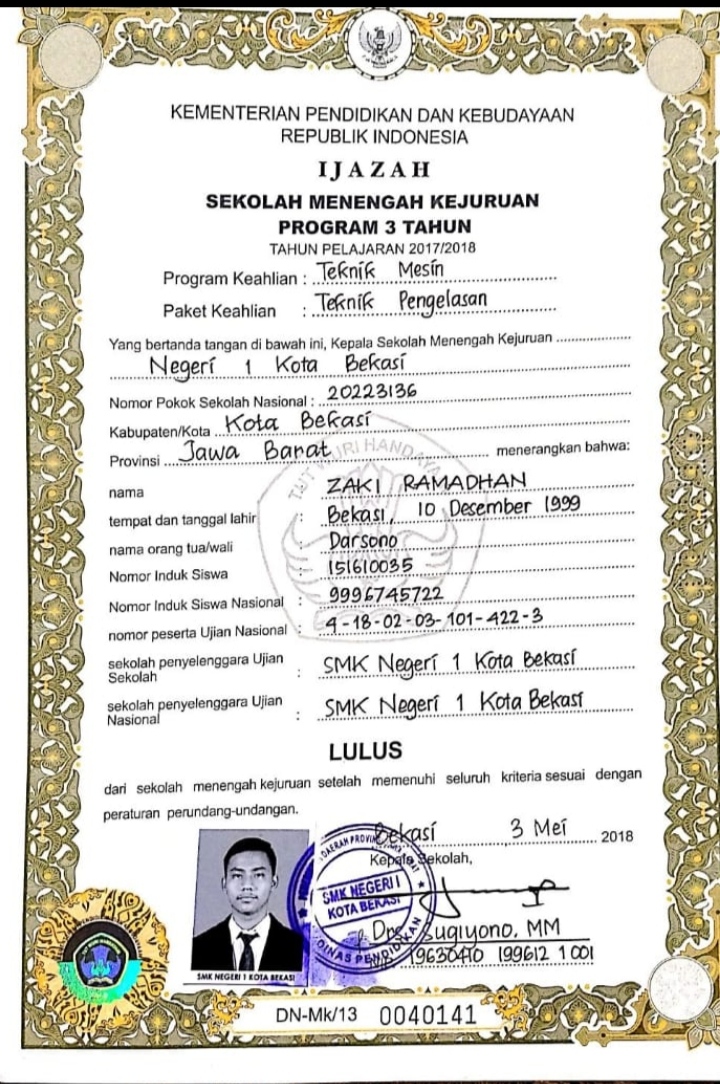 KEMENTERIAN PENDIDIKAN DAN KEBUDAYAAN
REPUBLIK INDONESIA
IJAZAH
SEKOLAH MENENGAH KEJURUAN
PROGRAM 3 TAHUN
TAHUN PELAJARAN 2017/2018
Program Keahlian : Teknik Mesin
Paket Keahlian : Teknik Pengelasan
Yang bertanda tangan di bawah ini, Kepala Sekolah Menengah Kejuruan
Negeri 1 Kota Bekasi
Nomor Pokok Sekolah Nasional : 20223136
Kabupaten/Kota Kota Bekasi
Provinsi Jawa Barat menerangkan bahwa:
TUT WURI HANDAYANI
nama : ZAKI RAMADHAN
tempat dan tanggal lahir : Bekasi, 10 Desember 1999
nama orang tua/wali : Darsono
Nomor Induk Siswa : 151610035
Nomor Induk Siswa Nasional : 9996745722
nomor peserta Ujian Nasional : 4-18-02-03-101-422-3
sekolah penyelenggara Ujian
Sekolah : SMK Negeri 1 Kota Bekasi
sekolah penyelenggara Ujian
Nasional : SMK Negeri 1 Kota Bekasi
LULUS
dari sekolah menengah kejuruan setelah memenuhi seluruh kriteria sesuai dengan
peraturan perundang-undangan.
Bekasi 3 Mei 2018
Kepala Sekolah,
DAERAH PROVINSI
SMK NEGERI 1
KOTA BEKASI
DINAS PENDIDIKAN
Drs. Sugiyono, MM
NIP 19630410 199612 1 001
SMK NEGERI 1 KOTA BEKASI
DN-Mk/13 0040141